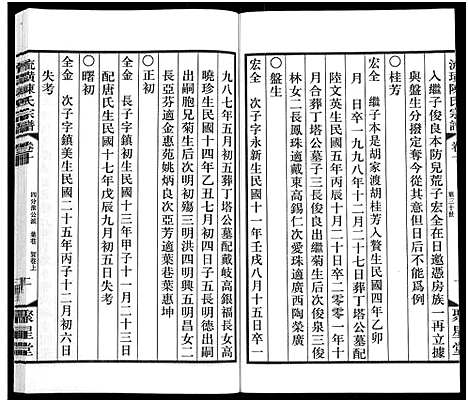 流璜陳氏宗譜 卷十
第三十世
人繼子俊良本防兒荒子宏全在日邀憑房族一再立據
與盤生分撥定奪今從其意但日后不能爲例
○桂芳
宏全 繼子本是胡家渡胡桂芳入贅生民國四年乙卯
月 日卒一九九八年十二月二十七日葬丁塔公墓配
陸文英生民國五年丙辰十月 日卒二零零一年十
月合葬丁塔公墓子三長俊良出繼菊生后次俊泉三俊
林女二長錫仁適戴東高錫仁次愛珠適廣西陶榮廣
宏全 次子字永新生民國十一年壬戌八月十五日卒一
九八七年五月初五日葬丁塔公墓配戴岐高銀福長女
曉珍生民國十四年乙丑七月初六日子五長明德出嗣
出嗣胞兄菊生后次明初殤三明洪四明興五明昌女二
長亞芬適金惠苑姚炳良次亞芳適葉巷葉惠坤
○正初
全金 長子字鎮初生民國十三年甲子十一月二十三日
配唐氏生民國十七年戊辰九月初五日失考
○曙初
全金 次子字鎮美生民國二十五年丙子十二月初六日
失考
流璜陳氏宗譜 卷十
四分淮公派 葉巷 賀巷上
十一
聚星堂